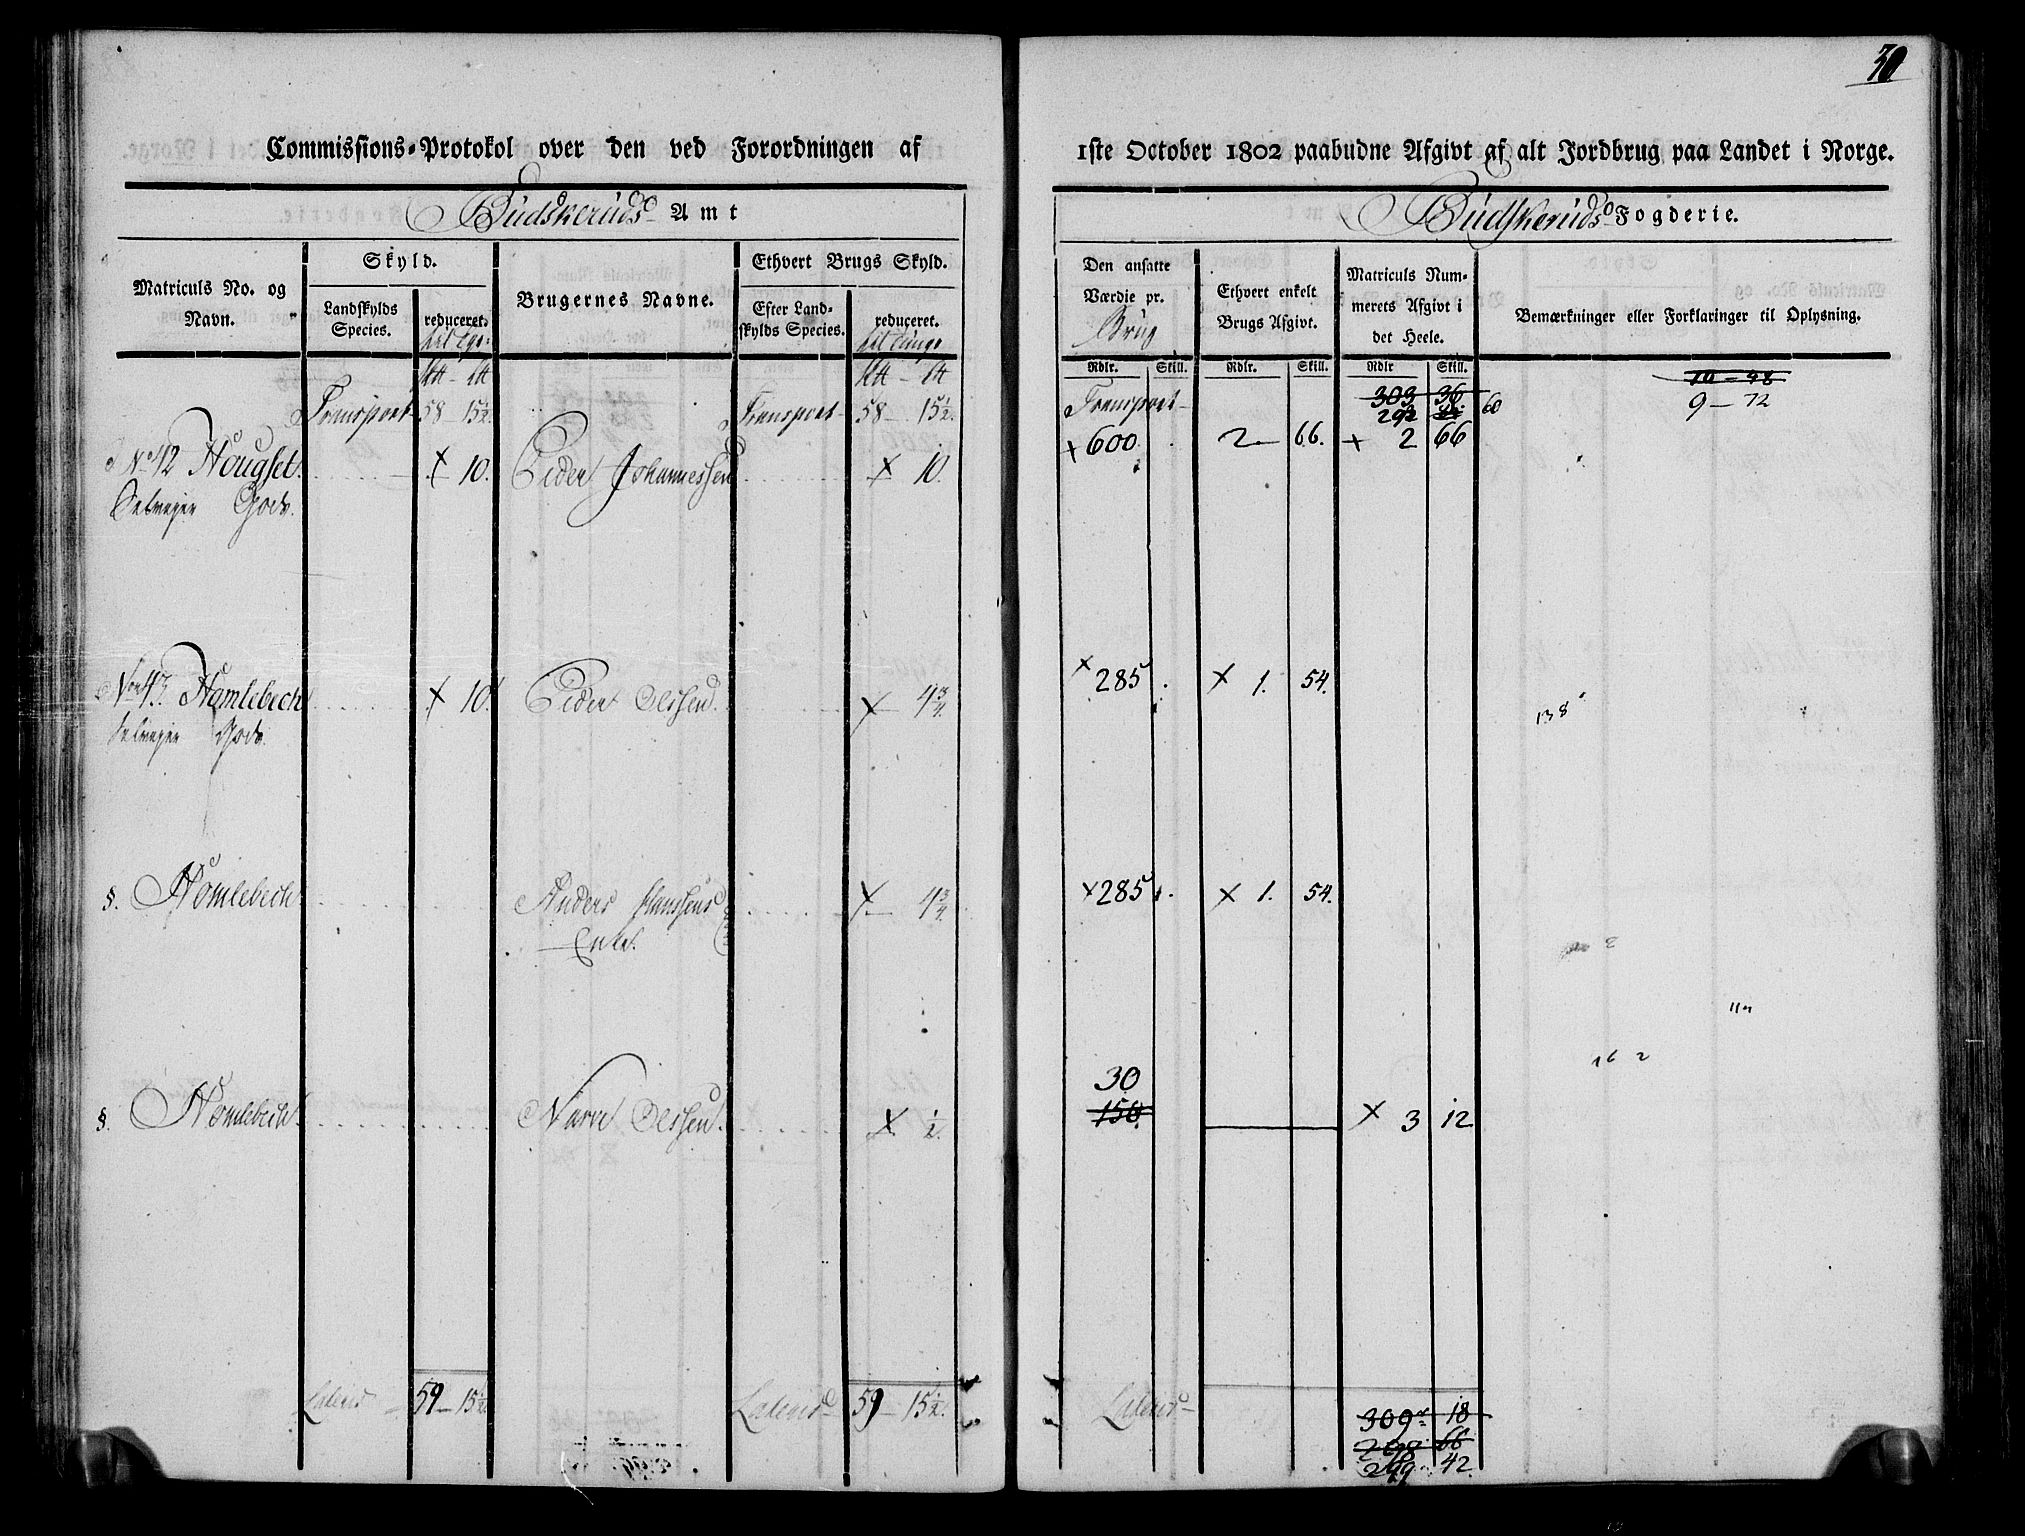 30
Commissions-Protokol over den ved Forordningen af
1ste October 1802 paabudne Afgivt af alt Jordbrug paa Landet i Norge.
Budskeruds Amt
Budskeruds Fogderie.
Matriculs No. og Navn.
Skyld.
Landskylds Species.
reduceret.
Brugernes Navne.
Ethvert Brugs Skyld.
Efter Landskylds Species.
reduceret.
Den ansatte Værdie pr. Brug
Ethvert enkelt Brugs Afgivt.
Matriculs Nummerets Afgivt i det Heele.
Bemærkninger eller Forklaringer til Oplysning.
Rdlr. Skill. Rdlr. Skill. Rdlr Skill.
Transport 58 - 15½ Transport 58 - 15½ Transport 303 36
292 60
10 - 48
9 - 72
No 42 Hougset × 10. Peder Johannessen × 10. × 600. 2 - 66. × 2 66
Selveyer Gods.
No 43. Homlebech × 10. Peder Olssen × 4¾ × 285. × 1. 54.
Selveyer Gods.
138
§. Homlebech Anders Hanssens × 4¾ × 285. × 1. 54.
Enke.
30
§. Homlebech Narve Olssen × ½ 150. × 3 12
16 2
Lateris 59 - 15½ Lateris 59 - 15½ Lateris 309 18
66
299 42